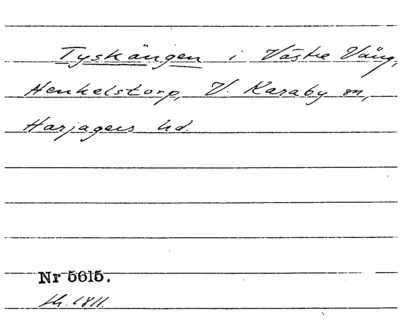 Tyskängen i Västre Vång,
Henkelstorp, V. Karaby sn,
Harjagers hd.
Nr 5615.
1811.